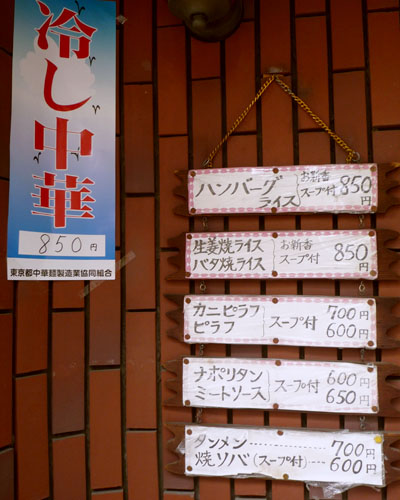 冷し中華
850円
東京都中華麺製造業協同組合
ハンバーグ
ライス
お新香
スープ付
850
円
生姜焼ライス
バタ焼ライス
お新香
スープ付
850
円
カニピラフ
ピラフ
スープ付
700円
600円
ナポリタン
ミートソース
スープ付
600円
650円
タンメン 700円
焼ソバ(スープ付) 600円